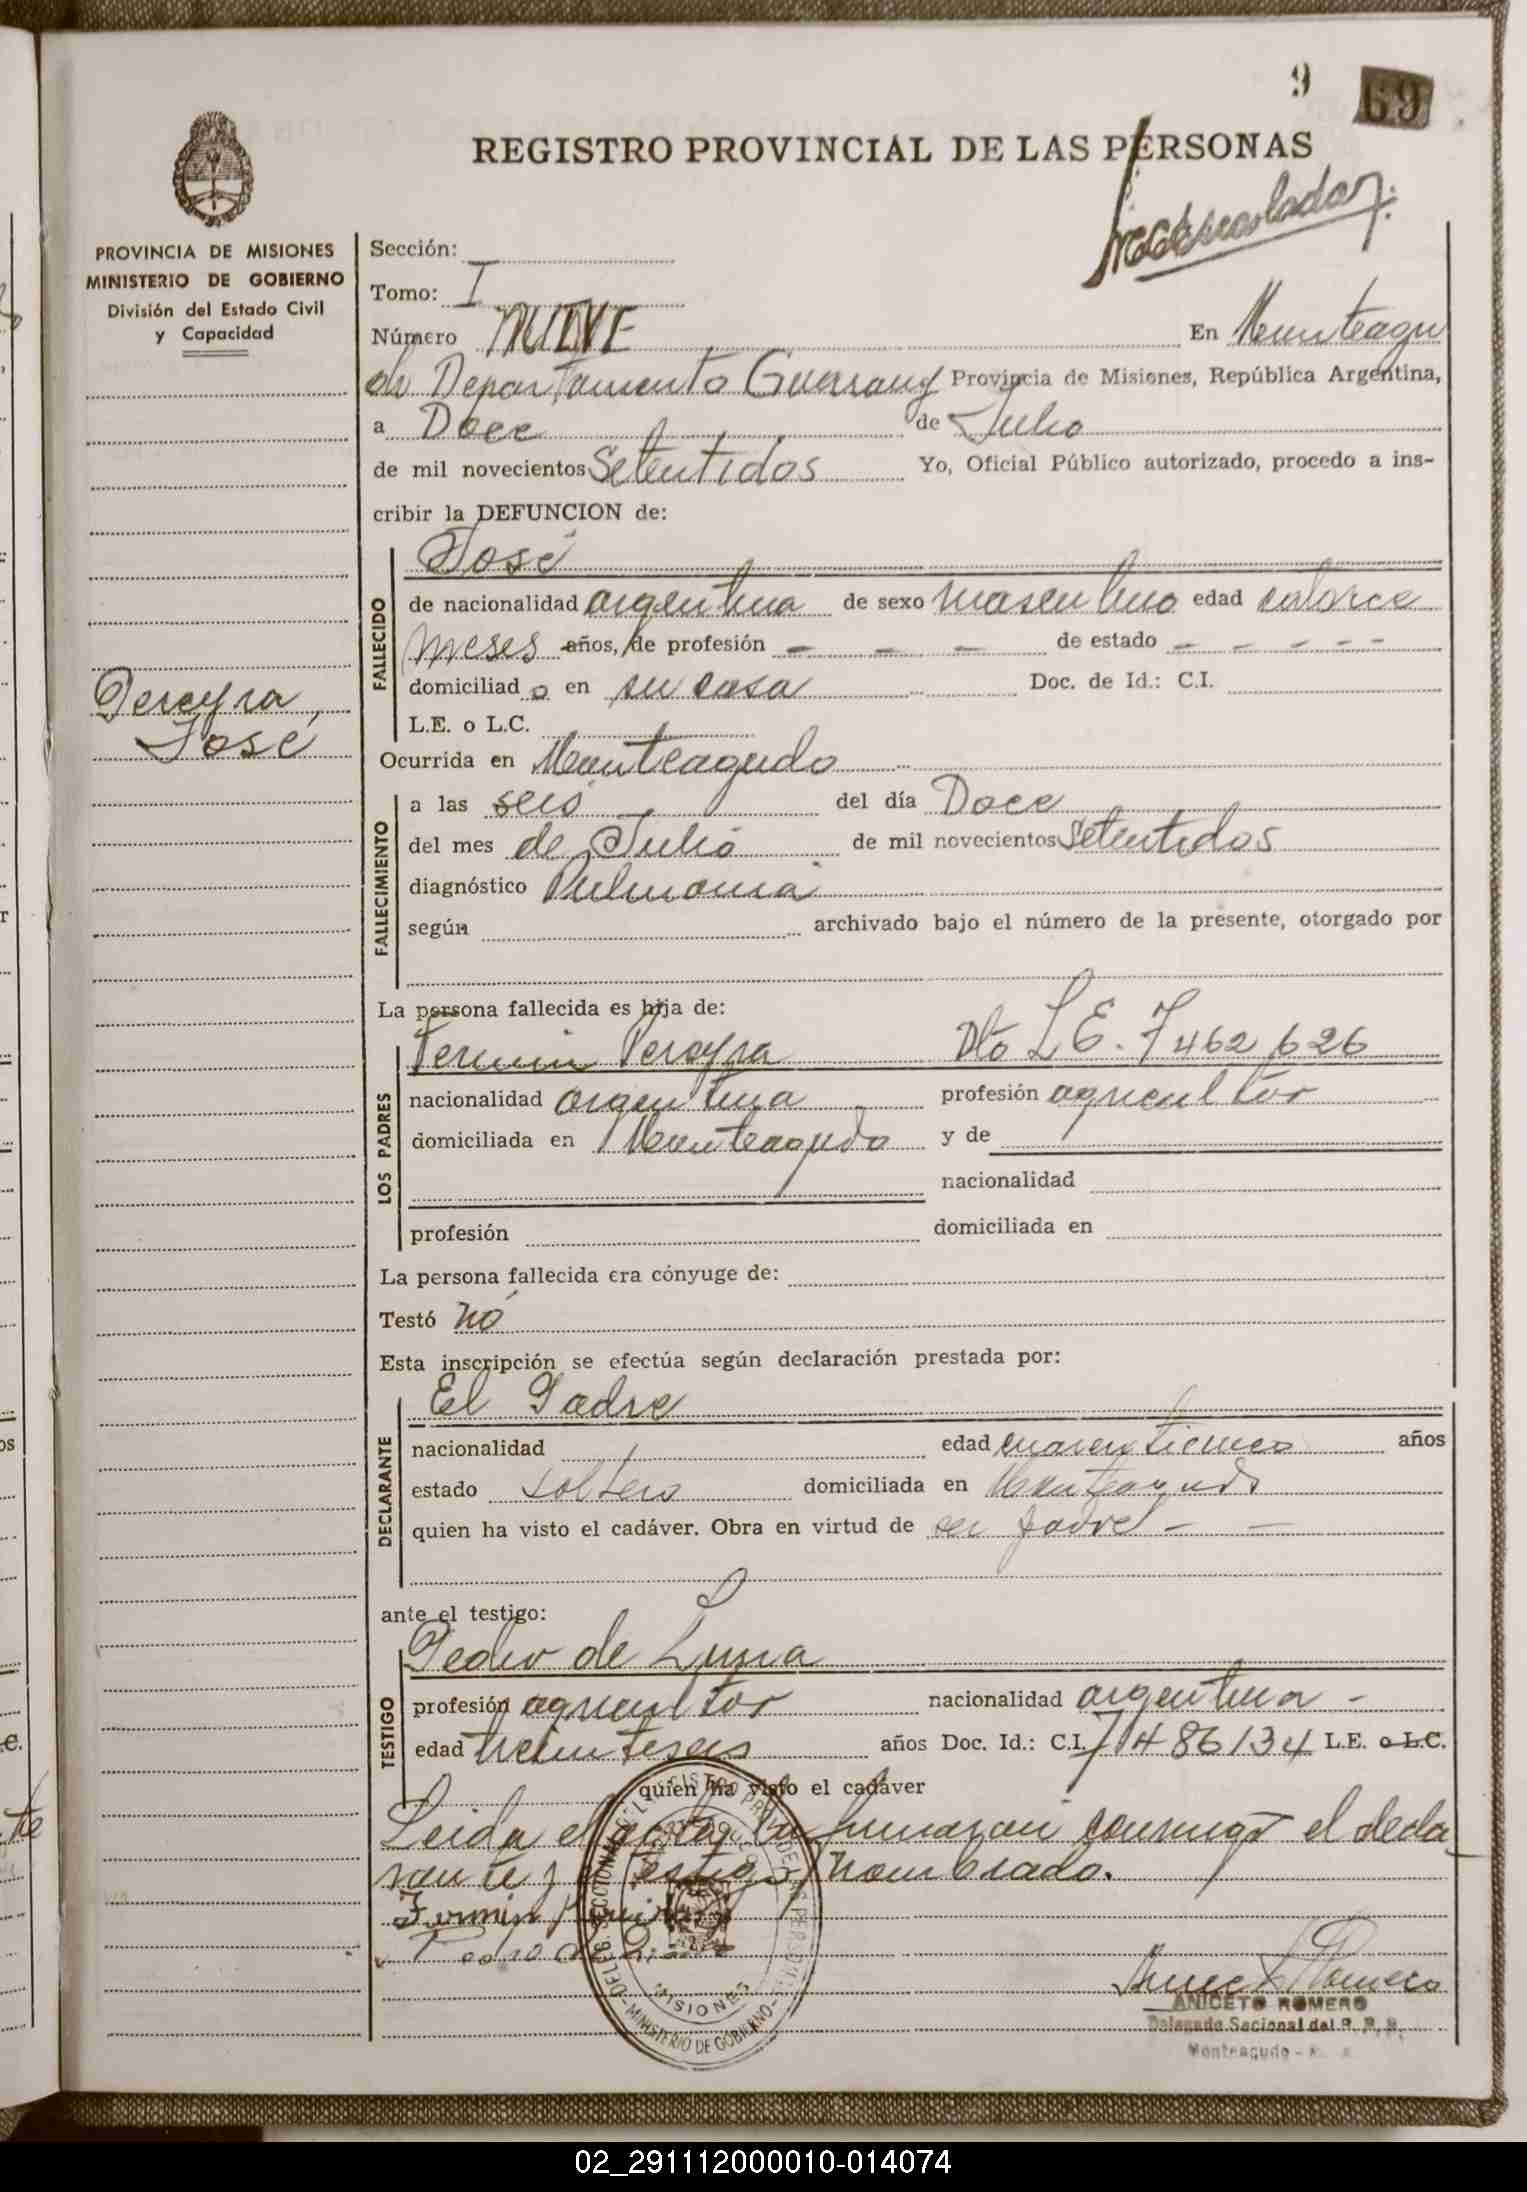 9 69
REGISTRO PROVINCIAL DE LAS PERSONAS
PROVINCIA DE MISIONES
MINISTERIO DE GOBIERNO
División del Estado Civil
y Capacidad
Pereyra,
José
Sección:
Tomo: I
Número NUEVE En Monteagu
do Departamento Guarany Provincia de Misiones, República Argentina,
a Doce de Julio
de mil novecientos Setentidos Yo, Oficial Público autorizado, procedo a ins-
cribir la DEFUNCION de:
FALLECIDO
José
de nacionalidad argentina de sexo masculino edad catorce
meses años, de profesión - - - de estado - - - - -
domiciliado en su casa Doc. de Id.: C.I.
L.E. o L.C.
Ocurrida en Monteagudo
FALLECIMIENTO
a las seis del día Doce
del mes de Julio de mil novecientos Setentidos
diagnóstico Pulmonia
según archivado bajo el número de la presente, otorgado por
La persona fallecida es hija de:
LOS PADRES
Fermin Pereyra Dto L E. 7462626
nacionalidad argentina profesión agricultor
domiciliada en Monteagudo y de
nacionalidad
profesión domiciliada en
La persona fallecida era cónyuge de:
Testó no
Esta inscripción se efectúa según declaración prestada por:
DECLARANTE
El Padre
nacionalidad edad años
estado soltero domiciliada en Monteagudo
quien ha visto el cadáver. Obra en virtud de ser padre - -
ante el testigo:
TESTIGO
Pedro de Lima
profesión agricultor nacionalidad argentina -
edad treintiseis años Doc. Id.: C.I. 7486134 L.E. o L.C.
quien ha visto el cadáver
Leida el acta, la firmaron conmigo el decla
rante y testigo nombrado.
Fermin
Pedro de
ANICETO ROMERO
Delegado Secional del R. P. P.
Monteagudo - M.
DELEG. SECCIONAL DEL REGISTRO PROV. DE LAS PERSONAS
MISIONES
- MINISTERIO DE GOBIERNO -
02_291112000010-014074